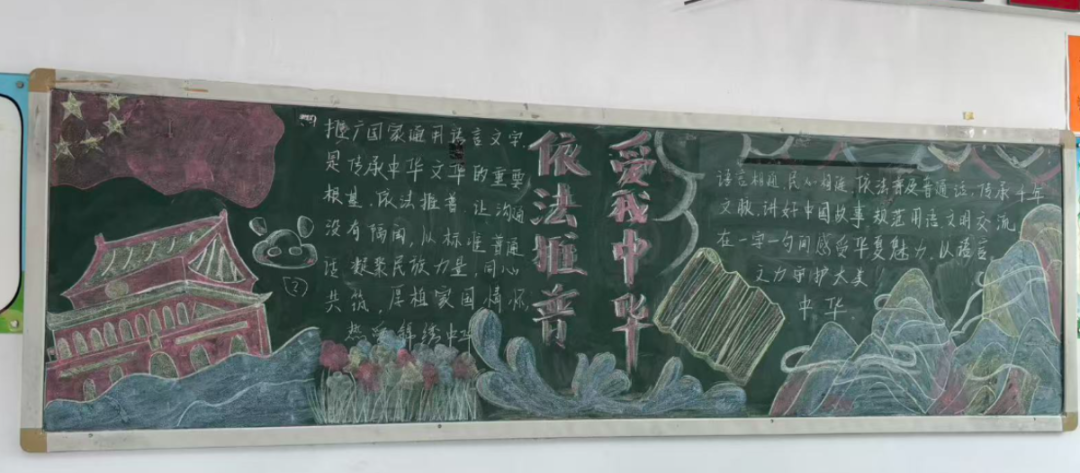 推广国家通用语言文字
是传承中华文华的重要
根基,依法推普,让沟通
没有隔阂,从标准普通
话凝聚民族力量,同心
共筑,厚植家国情怀,
热爱锦绣中华
依法推音
爱我中华
语言相通民心相通,依法普及普通话,传承千年
文脉,讲好中国故事,规范用语文明交流,
在一字一句间感受华夏魅力,以语言
之力守护大美
中华.